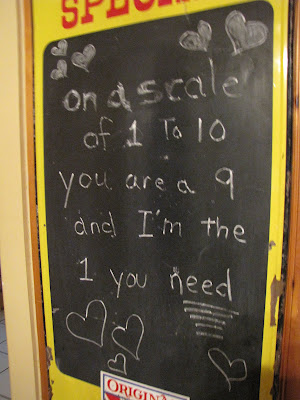 SPECIAL
on a scale
of 1 To 10
you are a 9
and I'm the
1 you need
ORIGINAL